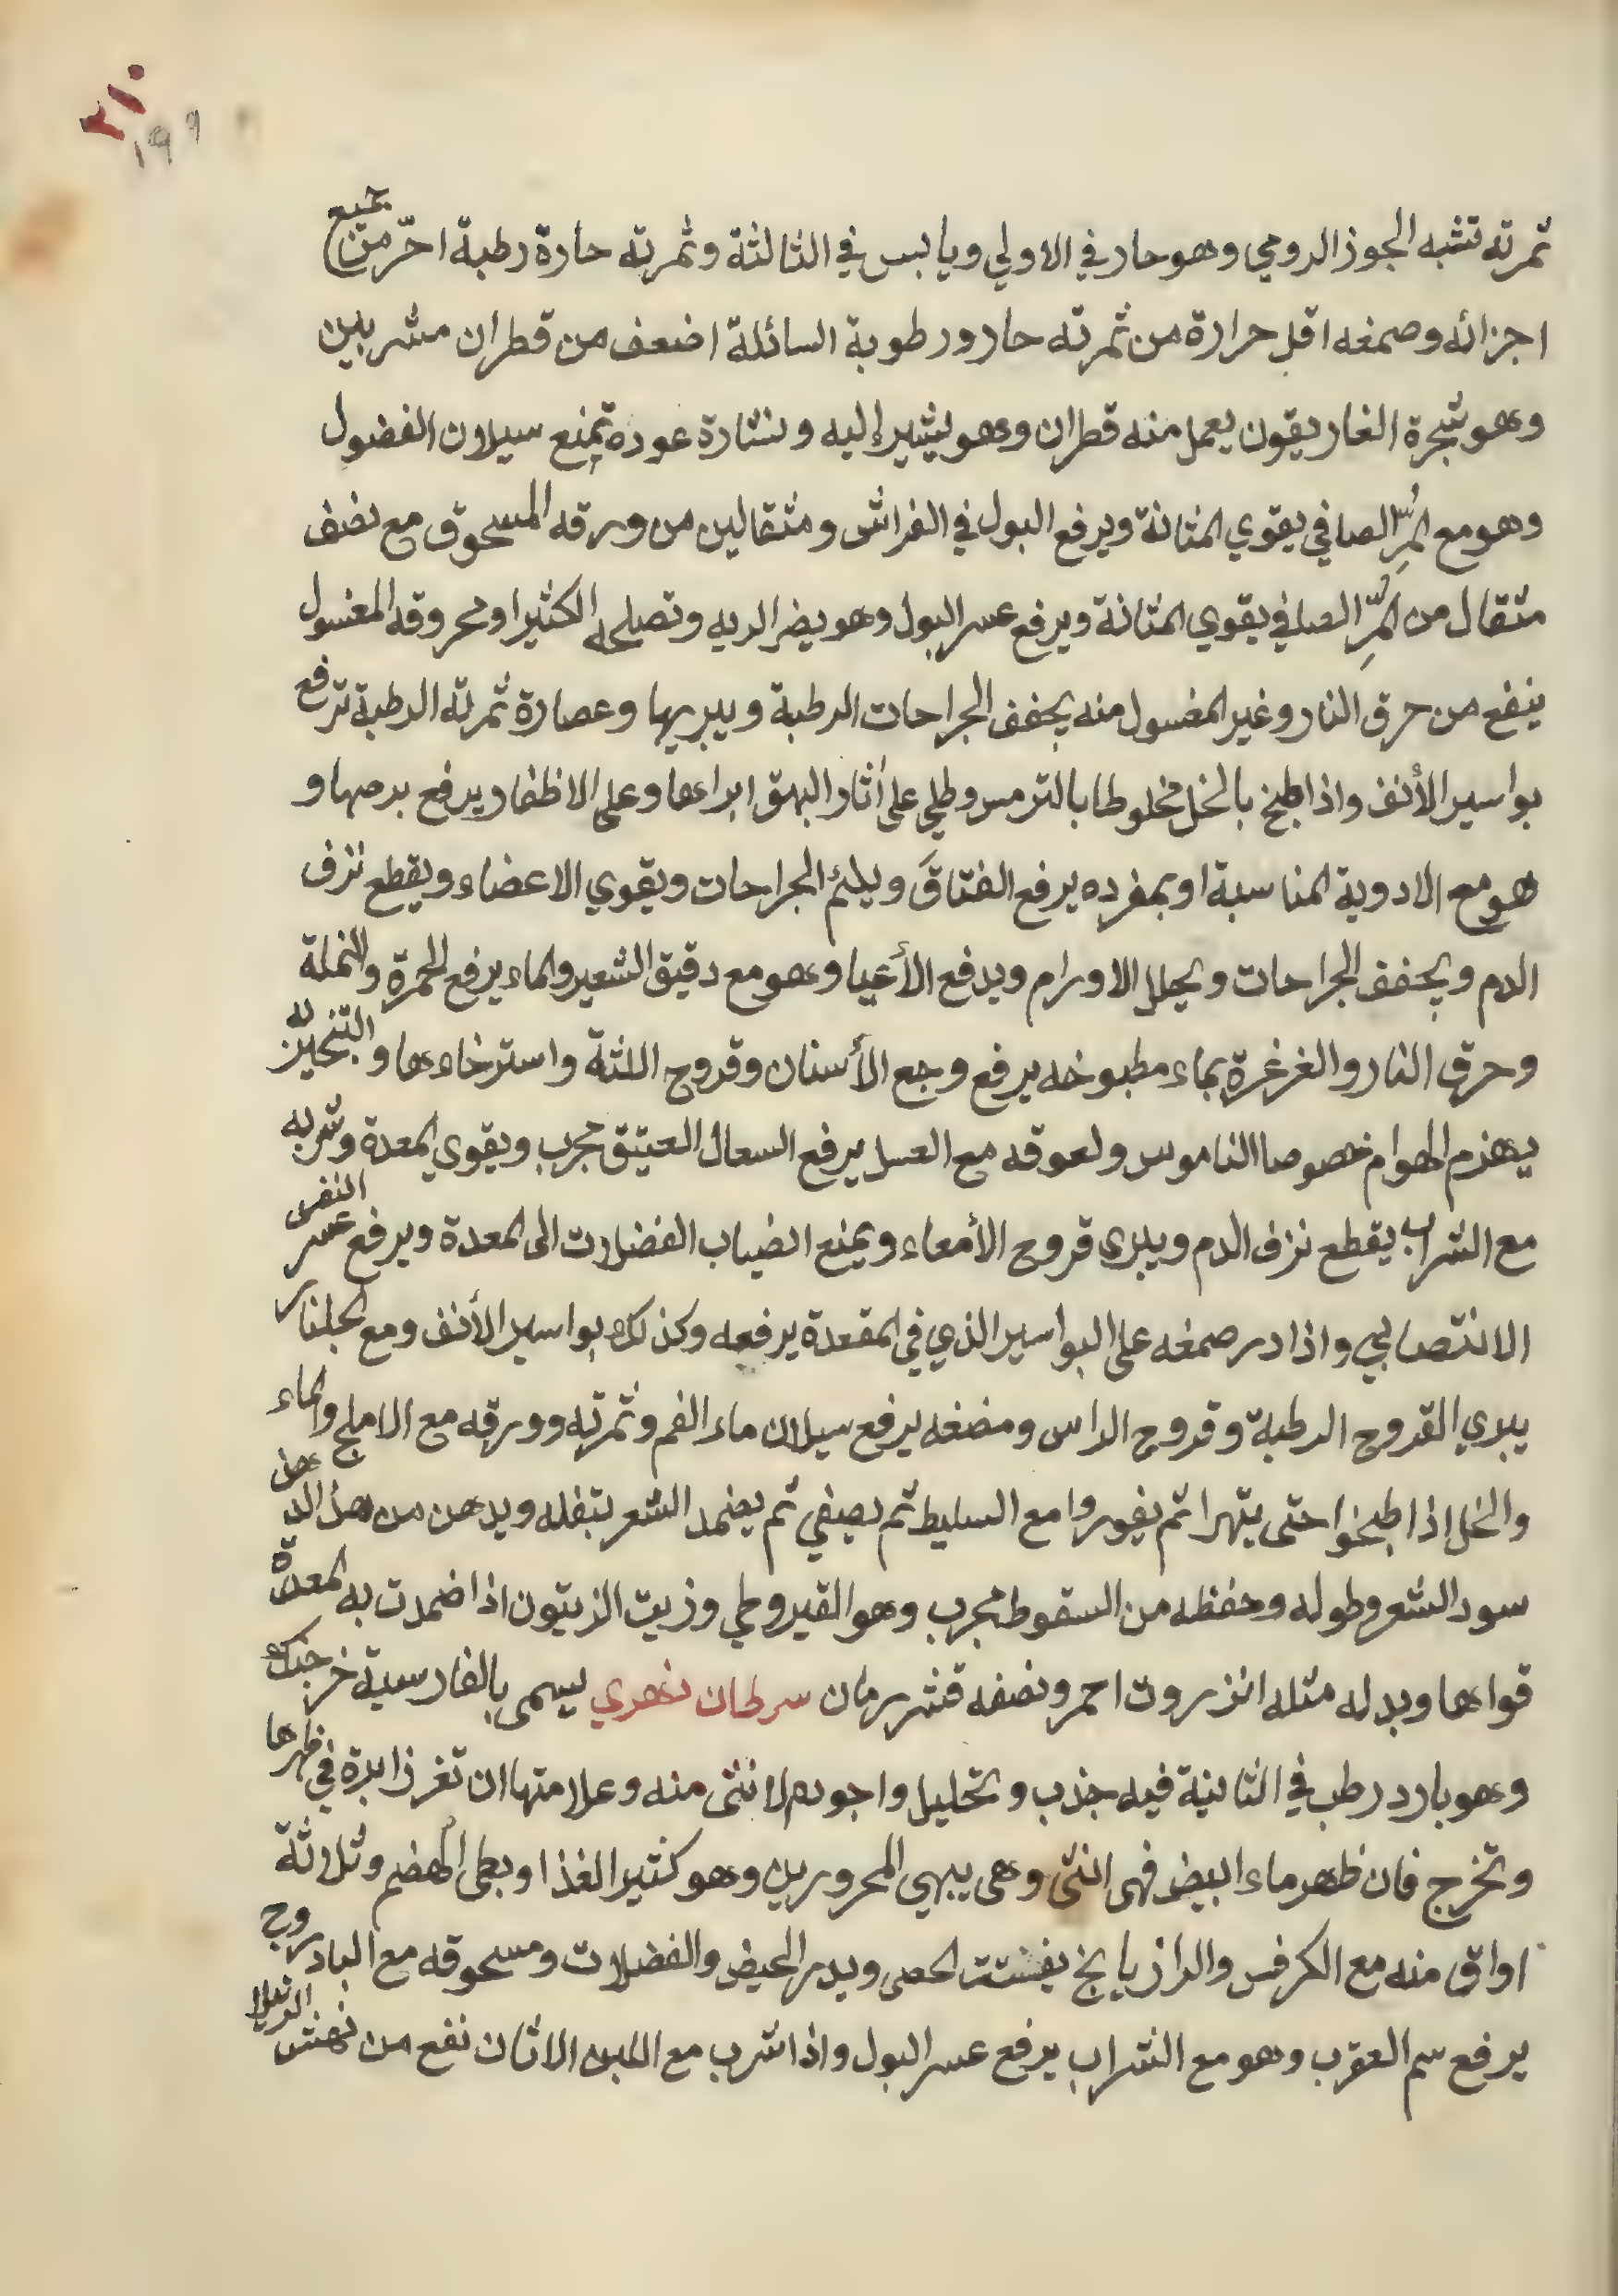 ٢١٠
١٩٩
ثمرته تشبه الجوز الرومي وهو حار في الاولي ويابس في الثالثة وثمرته حارة رطبة احرّ من جميع
اجزائه وصمغه اقل حرارة من ثمرته حار ورطوبة السائلة اضعف من قطران مشربين
وهو شجرة الغاريقون يعمل منه قطران وهو يشير إليه ونشارة عوده تمنع سيلان الفضول
وهو مع المرّ الصافي يقوي المثانة ويرفع البول في الفراش ومثقالين من ورقه المسحوق مع نصف
مثقال من المرّ الصافي يقوي المثانة ويرفع عسر البول وهو يضر الريه وتصلحه الكثيرا ومحروقه المغسول
ينفع من حرق النار وغير المغسول منه يجفف الجراحات الرطبة ويبريها وعصارة ثمرته الرطبة ترفع
بواسير الأنف واذا طبخ بالخل مخلوطا بالترمس وطلي على أثار البهق ابراءها وعلى الاظفار يرفع برصها و
هو مع الادوية المناسبة او بمفرده يرفع الفتاق ويلئم الجراحات ويقوي الاعضاء ويقطع نزف
الدم ويجفف الجراحات ويحلل الاورام ويدفع الأعيا وهو مع دقيق الشعير والماء يرفع الحمرة والنملة
وحرق النار والغرغرة بماء مطبوخه يرفع وجع الأسنان وقروح اللثة واسترخاءها والتبخين له
يهذم الهوام خصوصا الناموس ولعوقه مع العسل يرفع السعال العتيق مجرب ويقوي المعدة وشربه
مع الشراب يقطع نزف الدم ويبري قروح الأمعاء ويمنع انصباب الفضلات الى المعدة ويرفع عسر النفس
الانتصابي واذا در صمغه على البواسير الذي في المقعدة يرفعه وكذلك بواسير الأنف ومع الجلنار
يبري القروح الرطبة وقروح الراس ومضغه يرفع سيلان ماء الفم وثمرته وورقه مع الاملج والماء
والخل اذا طبخوا حتى يتهرا ثم يفوروا مع السليط ثم يصفي ثم يضمد الشعر بتفله ويدهن من هذ الدهن
سود الشعر وطوله وحفظه من السقوط مجرب وهو القيروطي وزيت الزيتون اذا ضمدت به المعدة
قواها وبدله مثله انزروت احمر ونصفه قشر رمان سرطان نهري يسمى بالفارسية خرجنك
وهو بارد رطب في الثانية فيه جذب وتحليل واجوده الانثى منه وعلامتها ان تغرز ابرة في ظهرها
وتخرج فان ظهر ماء ابيض فهي انثى وهي يبهي المحرورين وهو كثير الغذا وبطى الهضم وثلاثة
اواق منه مع الكرفس والرازيانج يفتت الحصى ويدر الحيض والفضلات ومسحوقه مع البادروج
يرفع سم العقرب وهو مع الشراب يرفع عسر البول واذا شرب مع اللبن الاتان نفع من نهش الرتيلا